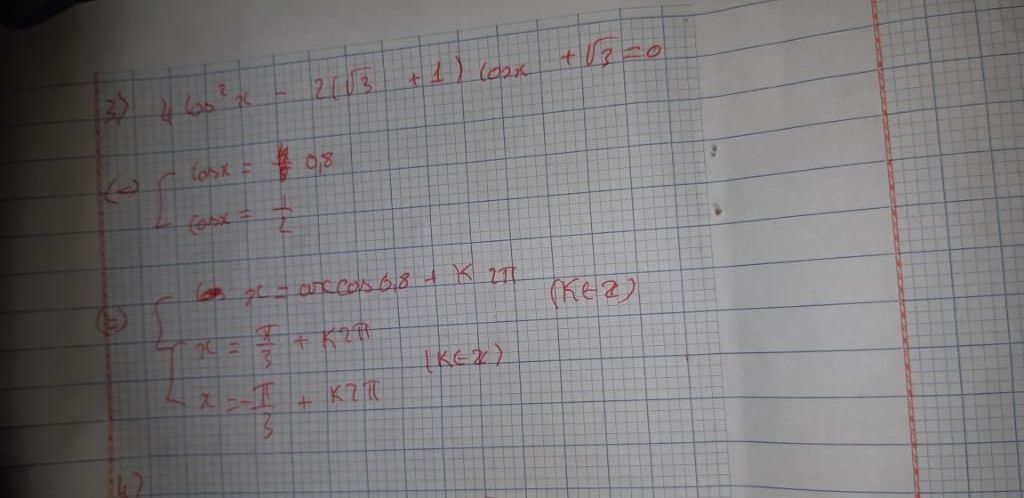 3) 4 cos²x - 2(√3 + 1) cosx + √3 = 0
(=) [ cosx = 0,8
cosx = 1/2
(=) [ x = arccos 0,8 + K2π (K∈Z)
x = π/3 + K2π
x = -π/3 + K2π (K∈Z)
4)